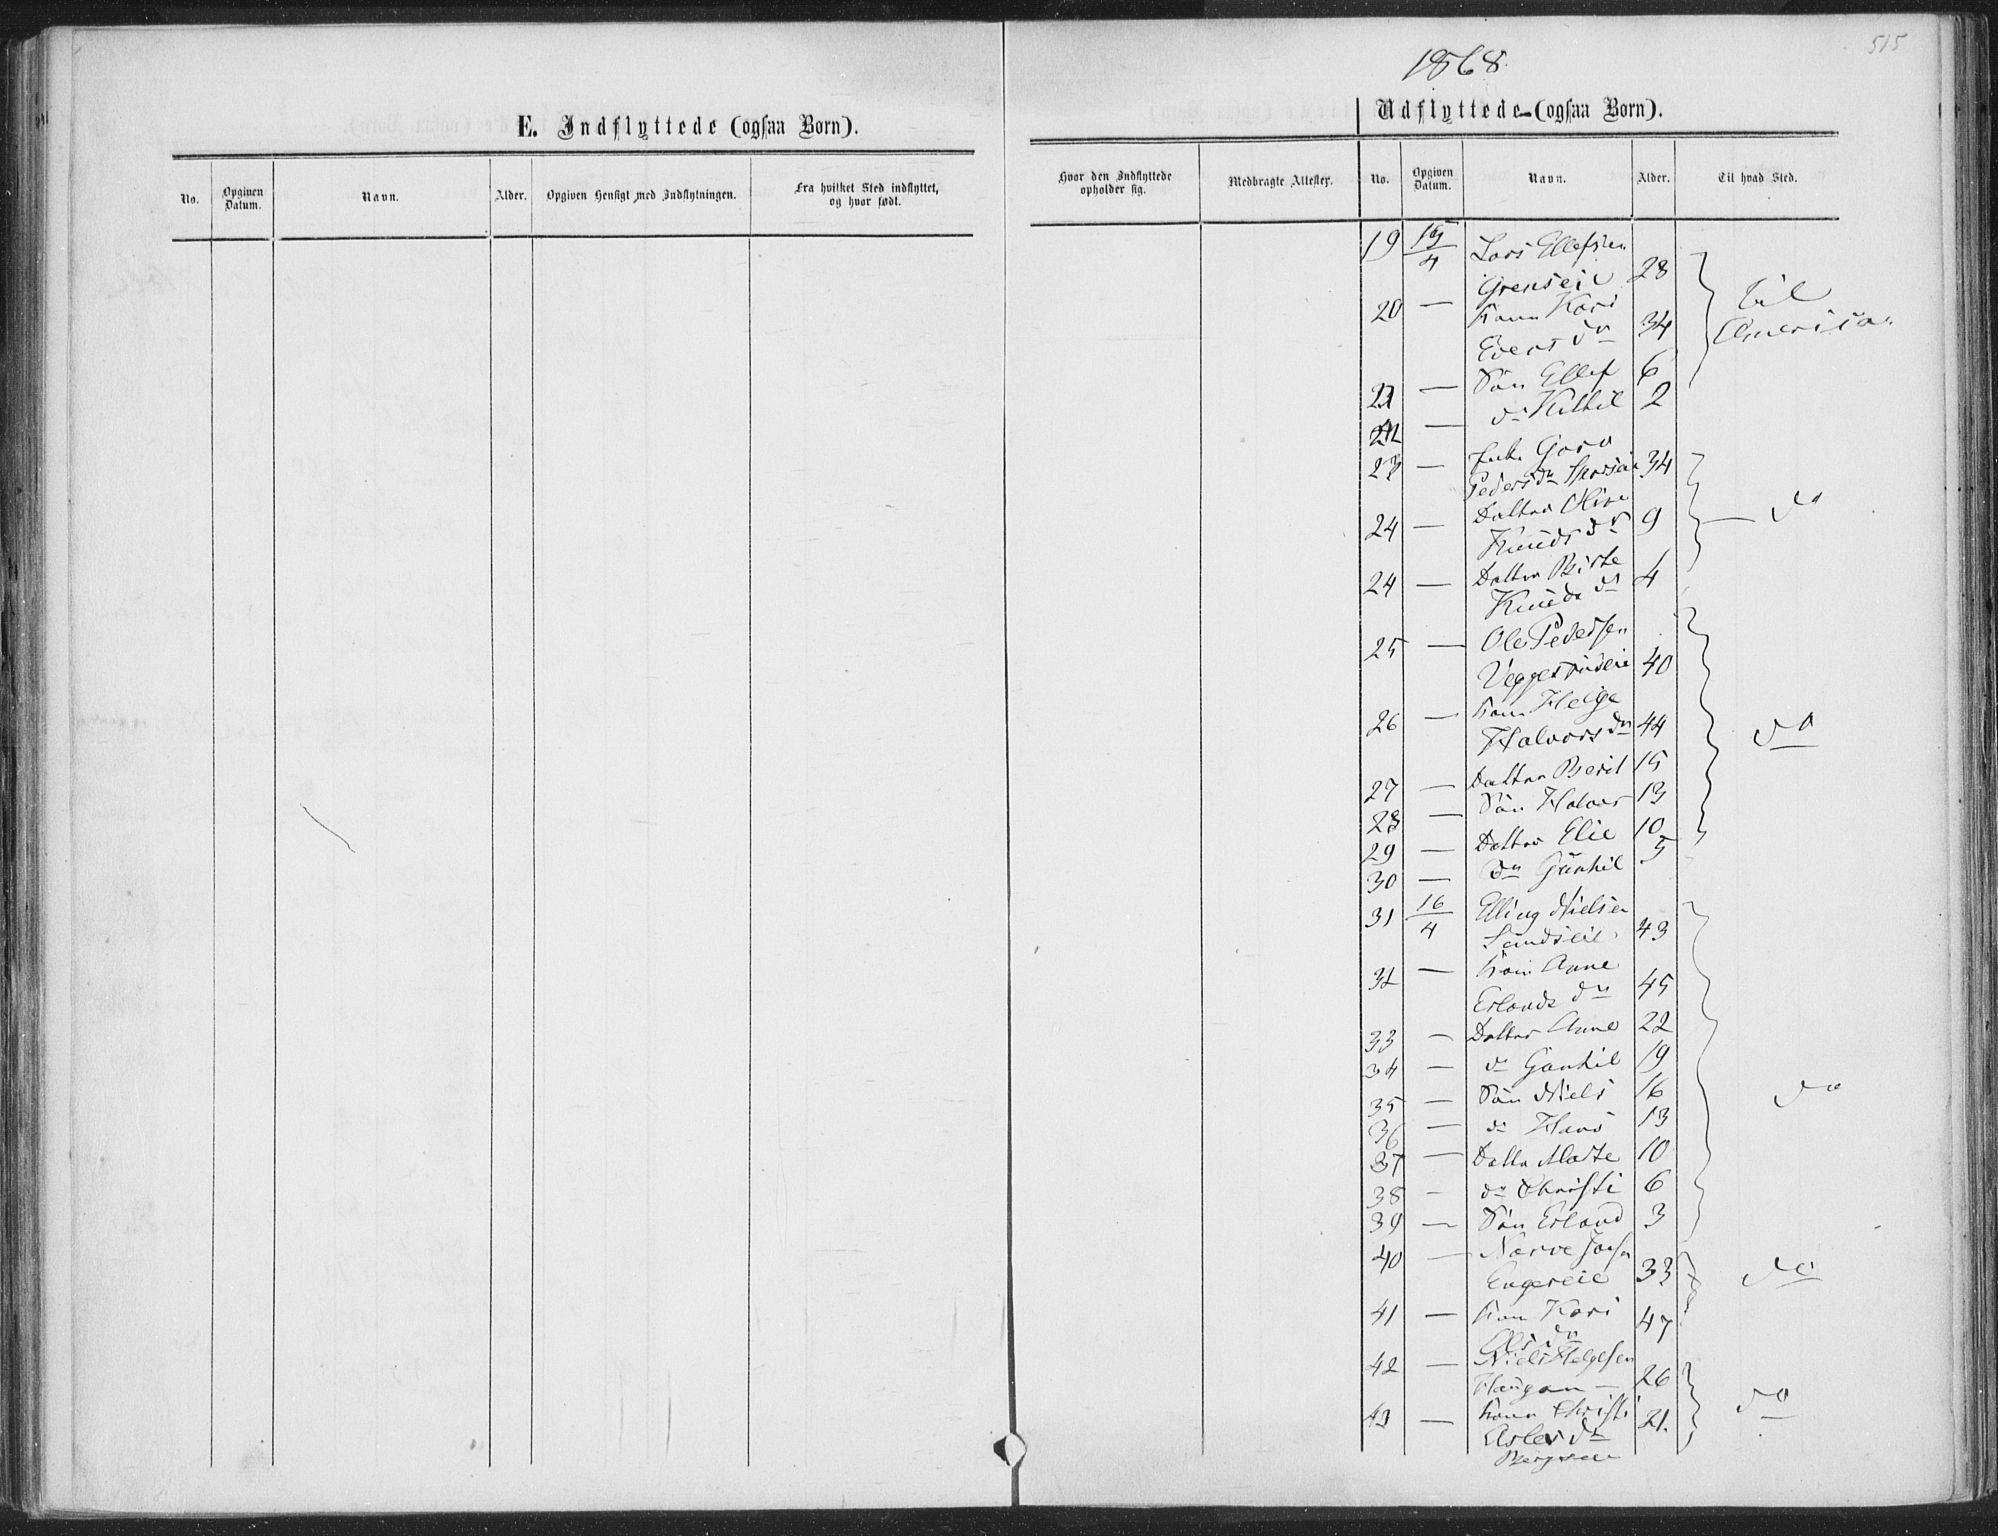 515
1868
E. Indflyttede (ogsaa Børn).
Udflyttede (ogsaa Børn).
No. Opgiven Datum. Navn. Alder. Opgiven Hensigt med Indflytningen. Fra hvilket Sted indflyttet, og hvor født.
Hvor den Indflyttede opholder sig. Medbragte Attester. No. Opgiven Datum. Navn. Alder. Til hvad Sted.
19 15/4 Lars Ellefsen
Grenseie 28
20 — Kone Kari
Evens dr 34
til
America
21 — Søn Ellef 6
22 — do Kittil 2
23 — Enke Goro
Peders dr 34
24 — Datter Olive
Knuds dr 9
do
24 — Datter Birte
Knuds dr 4
25 — Ole Pedersen
40
26 — Kone Helge
Halvors dr 44
do
27 — Datter Berit 15
28 — Søn Halvor 13
29 — Datter Elie 10
30 — do Gunhil 5
31 16/4 Elling Nielsen
43
32 — Kone Anne
Erlands dr 45
33 — Datter Anne 22
34 — do Gunhil 19
35 — Søn Niels 16
do
36 — do Hans 13
37 — Datter Marte 10
38 — do Christi 6
39 — Søn Erland 3
40 — Narve
Engereie 33
do
41 — Kone Kari
Ols dr 47
42 — Niels Helgesen
Haugan — 26
43 — Kone Christi
Asles dr 21
do